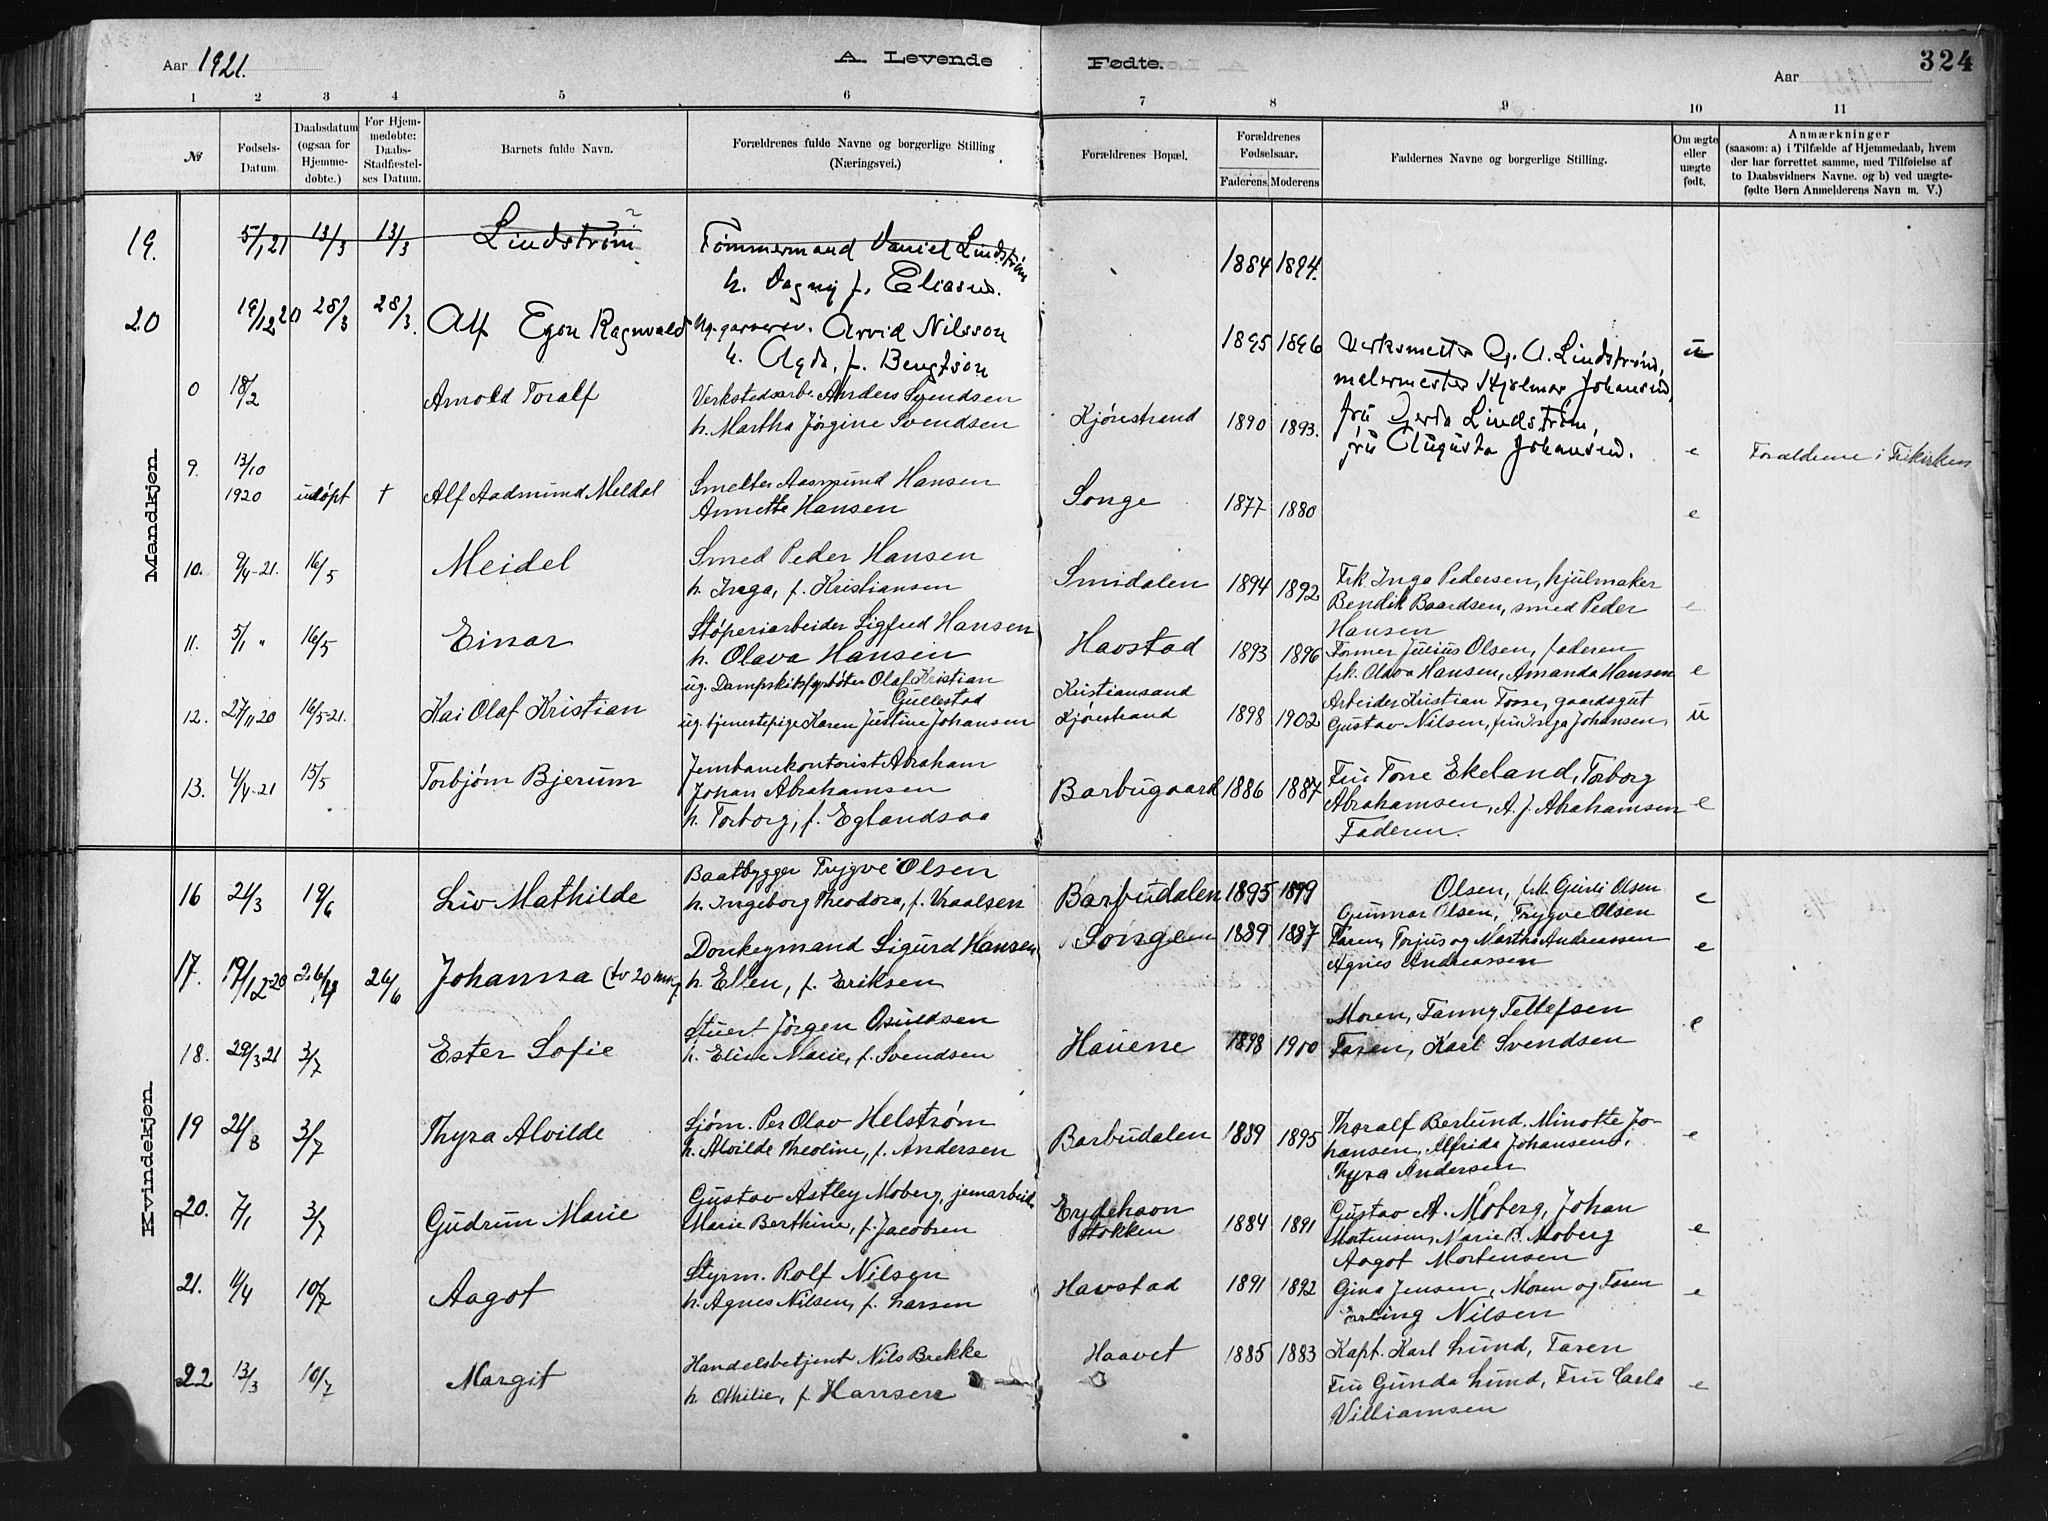 Aar 1921.
A. Levende
Fødte.
324
Aar
1 2 3 4 5 6 7 8 9 10 11
№
Fødsels-
Datum.
Daabsdatum
(ogsaa for
Hjemme-
døbte.)
For Hjem-
medøbte:
Daabs-
Stadfæstel-
ses Datum.
Barnets fulde Navn.
Forældrenes fulde Navne og borgerlige Stilling
(Næringsvei.)
Forældrenes Bopæl.
Forældrenes
Fødselsaar.
Faderens Moderens
Faddernes Navne og borgerlige Stilling.
Om ægte
eller
uægte
født.
Anmærkninger
(saasom: a) i Tilfælde af Hjemmedaab, hvem
der har forrettet samme, med Tilføielse af
to Daabsvidners Navne. og b) ved uægte-
fødte Børn Anmelderens Navn m. V.)
Mandkjøn.
19. 5/1 21 13/3 13/3 Lindstrøm ? Tømmermand Daniel Lindstrøm
h. Dagny f. Eliasen. 1884 1894.
20 19/12 20 28/3 28/3. Alf Egon Ragnvald Arvid Nilsson
h. Agda, f. Bengtson 1895 1896
Verksmester G. A. Lindstrøm, u
malermester Hjalmar Johansen,
fru Gerda Lindstrøm,
fru Augusta Johansen.
0 18/2 Arnold Toralf Verkstedsarb. Anders Svendsen
h. Martha Jørgine Svendsen Kjørestrand 1890 1893. e Forældrene i Frikirken
9. 13/10
1920 udøpt + Alf Aadmund Meldal Smelter Aasmund Hansen
Annette Hansen Songe 1877 1880 e
10. 9/4-21. 16/5 Meidel Smed Peder Hansen
h. Inga, f. Kristiansen Smidalen 1894 1892 Frk. Inga Pedersen, hjulmaker
Bendik Baardsen, smed Peder e
Hansen
11. 5/1 " 16/5 Einar Støperiarbeider Sigfred Hansen
h. Olava Hansen Havstad 1893 1896 Former Julius Olsen, faderen
frk. Olava Hansen, Amanda Hansen e
12. 27/11 20 16/5-21. Kai Olaf Kristian ug. Dampskibsfyrbøter Olaf Kristian
Gullestad
ug. tjenestepige Karen Justine Johansen
Kristiansand
Kjørestrand 1898 1902 Arbeider Kristian Tosse, gaardsgut
Gustav Nilsen, fru Inga Johansen, u
13. 4/4-21 15/5 Torbjørn Bjerum Jernbanekontorist Abraham
Johan Abrahamsen
h. Torborg, f. Eglandsaa Barbugaard 1886 1887 Fru Tone Ekeland, Torborg
Abrahamsen, A. J. Abrahamsen e
Faderen.
Kvindekjøn.
16 21/3 19/6 Liv Mathilde Baatbygger Trygve Olsen
h. Ingeborg Theodora, f. Vraalsen Barbudalen 1895 1899 Olsen, frk. Guri Olsen e
Gunnar Olsen, Trygve Olsen
17. 19/12-20 26/6 Johanna (tv 20 min) Donkeymand Sigurd Hansen
h. Ellen, f. Eriksen Songe 1889 1887 Faren, Torjus og Martha Andreassen e
Agnes Andreassen
18. 29/3 21 3/7 Ester Sofie Stuert Jørgen Osuldsen
h. Elise Marie, f. Svendsen Hauene 1898 1900 Moren, Fanny Tellefsen e
Faren, Karl Svendsen
19 21/3 3/7 Thyra Alvilde Sjøm. Per Olav Helstrøm
h. Alvilde Theoline, f. Andersen Barbudalen 1889 1895 Thoralf Berlund, Minotte Jo-
hansen, Alfrida Johansen, e
Thyra Andersen
20. 7/1 3/7 Gudrun Marie Gustav Astley Moberg, jernarbeid.
Marie Berthine, f. Jacobsen Eydehavn
Stokken 1884 1891 Gustav A. Moberg, Johan
Mortensen, Marie B. Moberg e
Aagot Mortensen
21. 11/4 10/7 Aagot Styrm. Rolf Nilsen
h. Agnes Nilsen, f. Larsen Havstad 1891 1892 Gina Jensen, Moren og Faren e
Erling Nilsen
22 13/3 10/7 Margit Handelsbetjent Nils Brekke
h. Othilie, f. Hansen Haavet 1885 1883 Kapt. Karl Lund, Faren
Fru Gunda Lund, Fru Carla e
Villiamsen